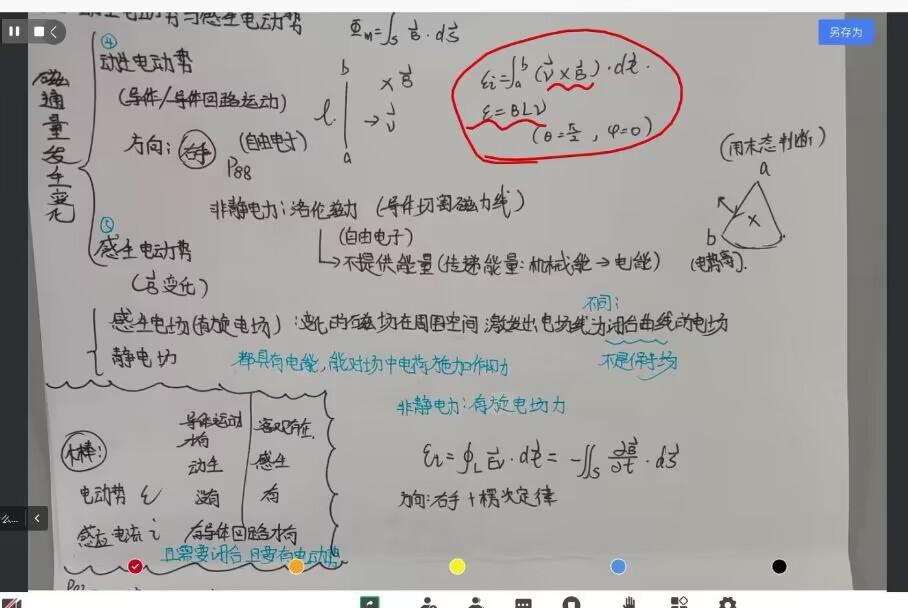 动生电动势与感生电动势
Φm=∫s B⃗·dS⃗
另存为
磁通量发生变化
④
动生电动势
(导体/导体回路运动)
方向: 右手 (自由电子)
P88
b
×B⃗
l
→v⃗
a
εi=∫a^b (v⃗×B⃗)·dl⃗.
ε=BLv
(θ=π/2, φ=0)
(用末态判断)
a
×
b
非静电力: 洛伦兹力 (导体切割磁力线)
(自由电子)
→不提供能量(传递能量: 机械能→电能)
⑤
感生电动势
(B⃗变化)
不同:
感生电场(有旋电场): 变化的磁场在周围空间激发出电场线为闭合曲线的电场
静电场
都具有电能, 能对场中电荷施加作用力
不是保守场
非静电力: 有旋电场力
εi=∮L E⃗v·dl⃗=-∬S ∂B⃗/∂t·dS⃗
方向: 右手+楞次定律
木棒:
导体运动才有 客观存在.
动生 感生
电动势 ε 没有 有
感应电流 i 有导体回路才有
且需要闭合 且要有电动势